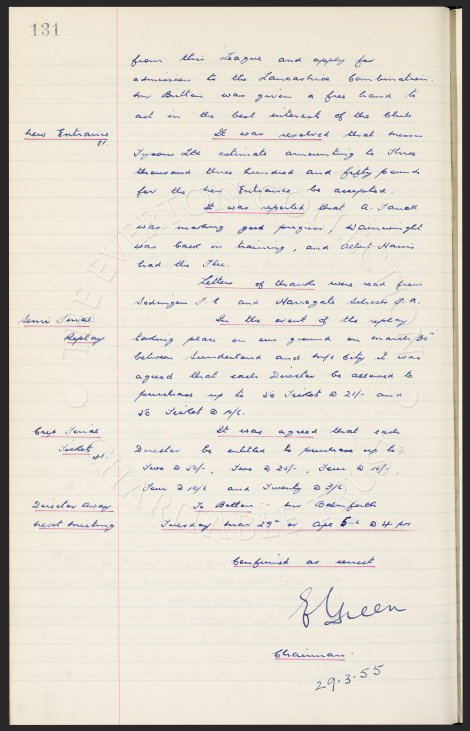 131
from this League and apply for
admission to the Lancashire Combination.
Mr Britton was given a free hand to
act in the best interest of the Club
New Entrance
It was resolved that Messrs
Tyson Ltd estimate amounting to Three
thousand three hundred and fifty pounds
for the New Entrances be accepted.
It was reported that A. Farrell
was making good progress, Wainwright
was back in training, and Albert Harris
had the Flu.
Letters of thanks were read from
F.C and Harrogate Schools F.A.
Semi Final
Replay
In the event of the replay
taking place on our ground on March 30
between Sunderland and M/c City it was
agreed that each Director be allowed to
purchase up to 50 Ticket @ 21/- and
50 Ticket @ 10/6.
Cup Final
Ticket
It was agreed that each
Director be entitled to purchase up to:
Two @ 50/-, Two @ 25/-, Four @ 15/-,
Four @ 10/6 and Twenty @ 3/6.
Director Away
To Bolton :: Mr
next meeting
Tuesday Mar 29th or Apl 5th @ 4 pm
Confirmed as correct
E Green
Chairman.
29.3.55
THE EVERTON COLLECTION
CHARITABLE TRUST